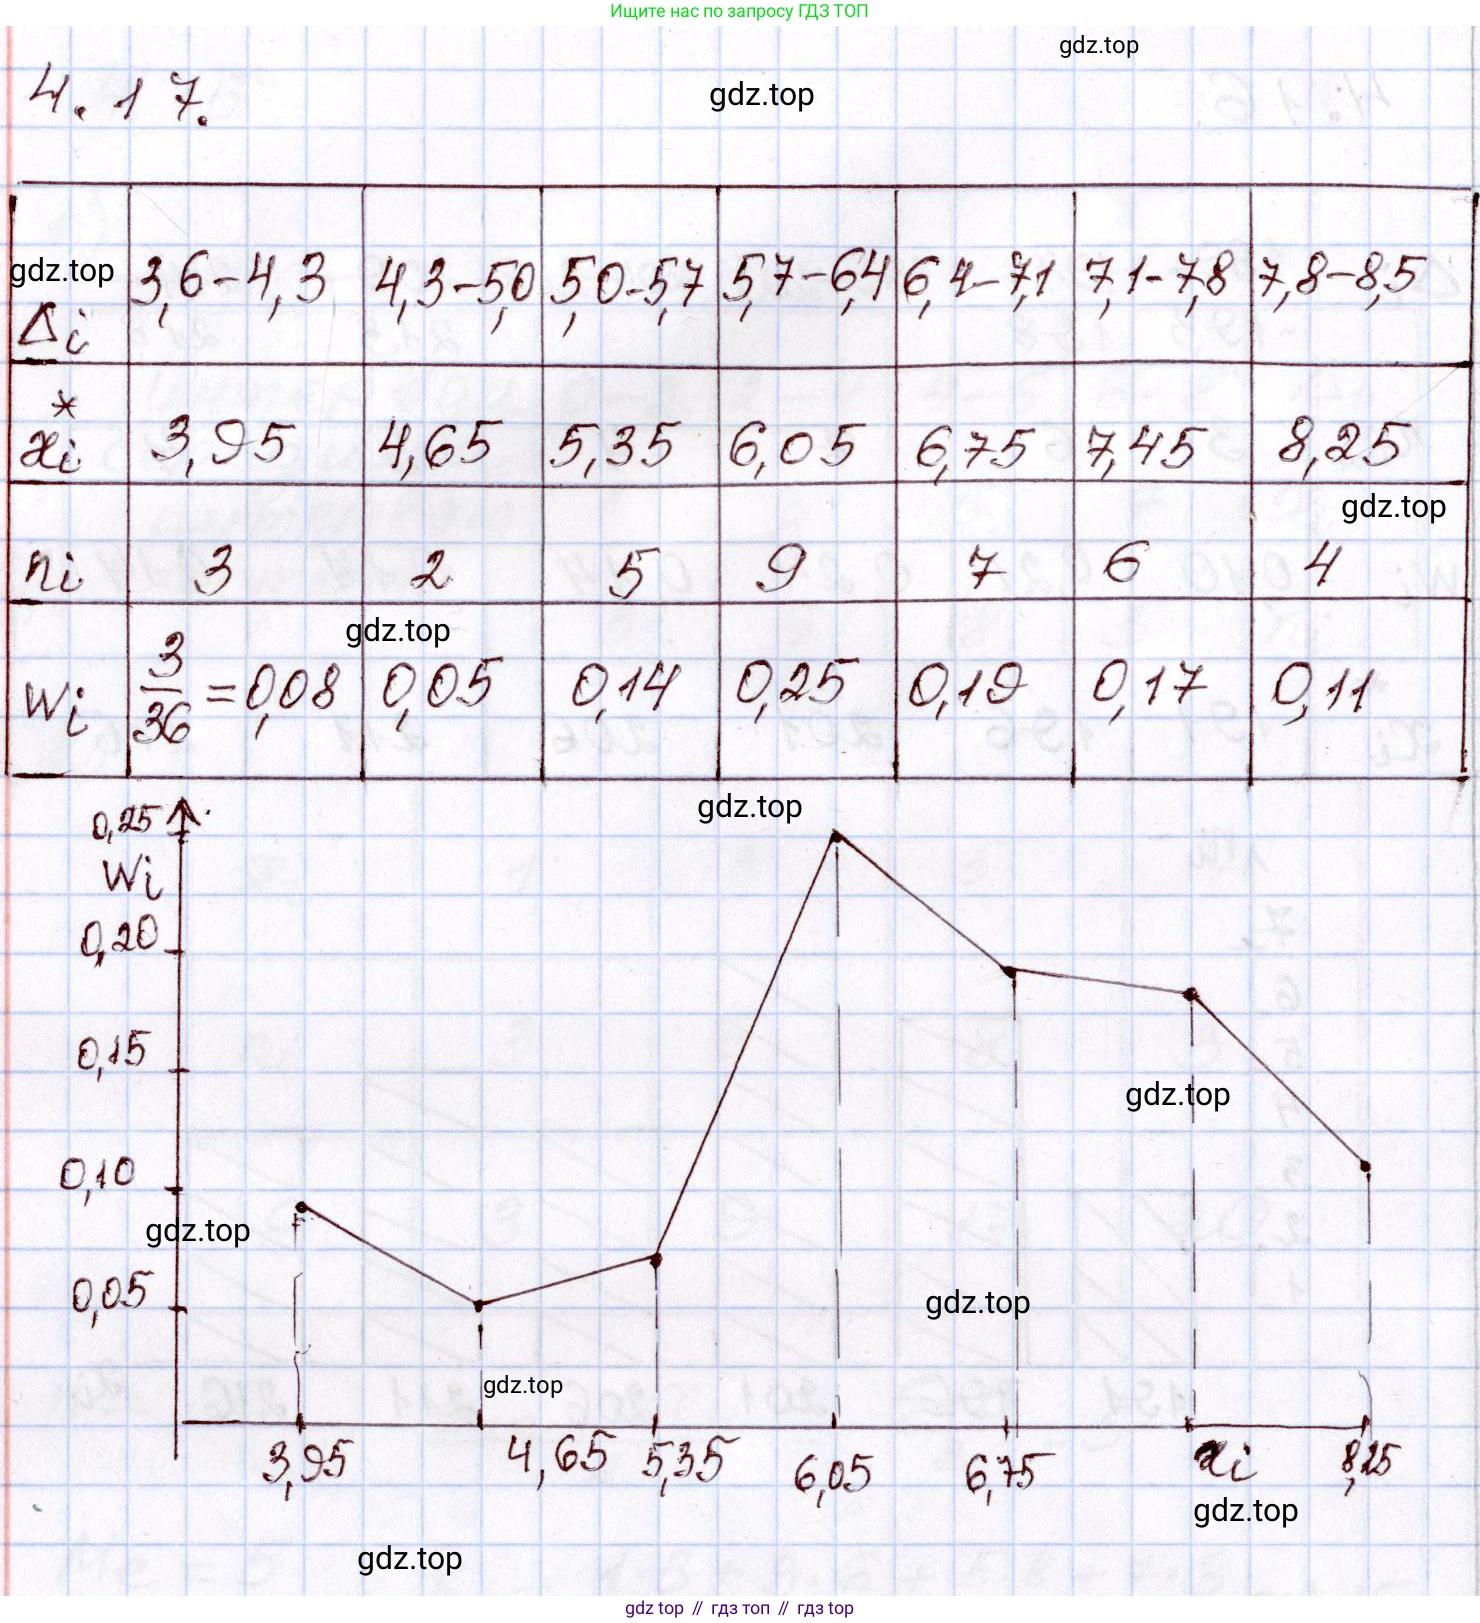 Ищите нас по запросу ГДЗ ТОП
gdz.top
4.17.
gdz.top
gdz.top
Δi 3,6-4,3 4,3-5,0 5,0-5,7 5,7-6,4 6,4-7,1 7,1-7,8 7,8-8,5
xi* 3,95 4,65 5,35 6,05 6,75 7,45 8,25
gdz.top
ni 3 2 5 9 7 6 4
gdz.top
wi 3/36=0,08 0,05 0,14 0,25 0,19 0,17 0,11
gdz.top
0,25
wi
0,20
0,15
gdz.top
0,10
gdz.top
0,05
gdz.top
gdz.top
3,95 4,65 5,35 6,05 6,75 xi 8,25
gdz.top
gdz.top
gdz.top // гдз топ // гдз.top